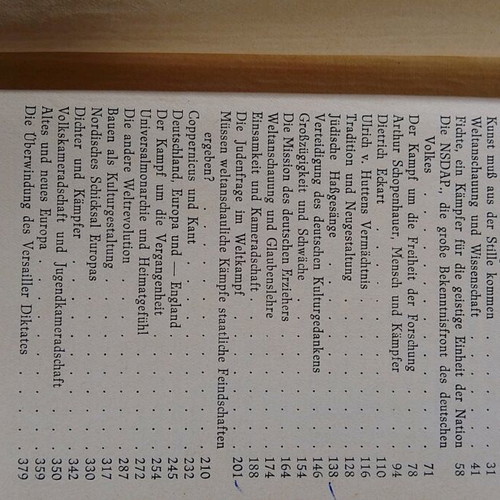 Kunst muß aus der Stille kommen . . . . . 31
Weltanschauung und Wissenschaft . . . . . 41
Fichte, ein Kämpfer für die geistige Einheit der Nation 58
Die NSDAP., die große Bekenntnisfront des deutschen
Volkes . . . . . 71
Der Kampf um die Freiheit der Forschung . . . . . 78
Arthur Schopenhauer, Mensch und Kämpfer . . . . . 94
Dietrich Eckart . . . . . 110
Ulrich v. Huttens Vermächtnis . . . . . 116
Tradition und Neugestaltung . . . . . 128
Jüdische Haßgesänge . . . . . 138
Verteidigung des deutschen Kulturgedankens . . . . . 146
Großzügigkeit und Schwäche . . . . . 154
Die Mission des deutschen Erziehers . . . . . 164
Weltanschauung und Glaubenslehre . . . . . 174
Einsamkeit und Kameradschaft . . . . . 188
Die Judenfrage im Weltkampf . . . . . 201
Müssen weltanschauliche Kämpfe staatliche Feindschaften
ergeben? . . . . . 210
Coppernicus und Kant . . . . . 232
Deutschland, Europa und — England . . . . . 245
Der Kampf um die Vergangenheit . . . . . 254
Universalmonarchie und Heimatgefühl . . . . . 272
Die andere Weltrevolution . . . . . 287
Bauen als Kulturgestaltung . . . . . 317
Nordisches Schicksal Europas . . . . . 330
Dichter und Kämpfer . . . . . 342
Volkskameradschaft und Jugendkameradschaft . . . . . 350
Altes und neues Europa . . . . . 359
Die Überwindung des Versailler Diktates . . . . . 379